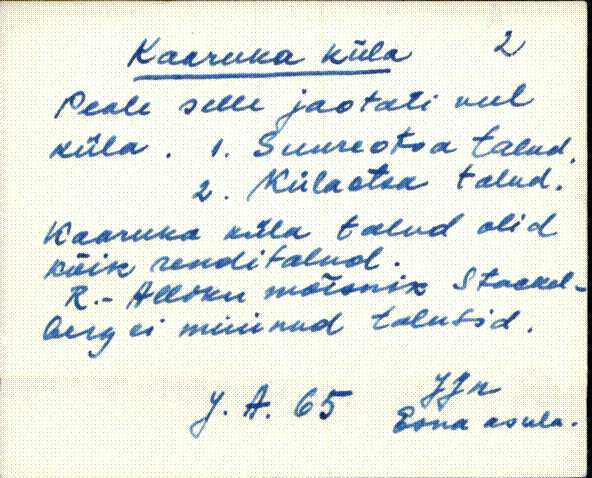 Kaaruka küla 2
Peale selle jaotati veel
küla. 1. Suureotsa talud.
2. Külaotsa talud.
Kaaruka küla talud olid
kõik renditalud.
R.-Alliku mõisnik Stackel-
berg ei müünud talusid.
J. A. 65
Esna asula.